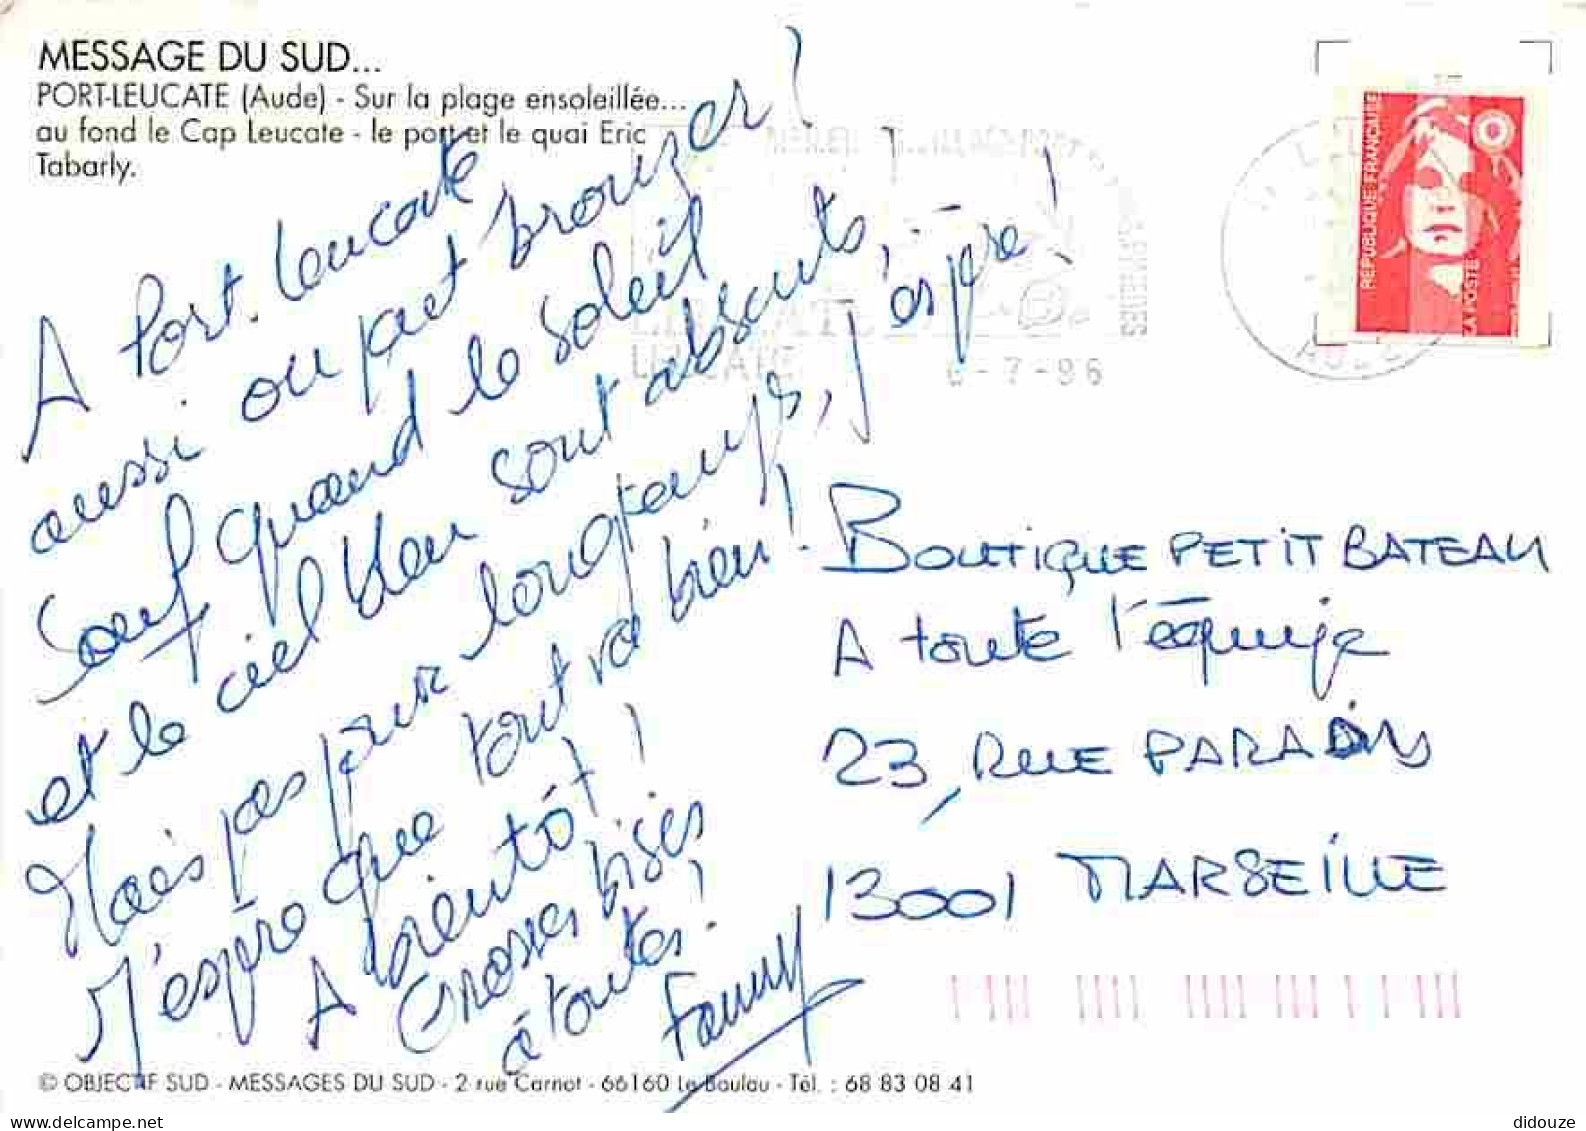 MESSAGE DU SUD...
PORT-LEUCATE (Aude) - Sur la plage ensoleillée...
au fond le Cap Leucate - le port et le quai Eric
Tabarly.
A Port. Leucate
aussi on peut bronzer !
Sauf quand le soleil
et le ciel bleu sont absents,
Mais pas pour longtemps, j'espère !
J'espère que tout va bien !
A bientôt !
Grosses bises
à toutes !
Fanny
RÉPUBLIQUE FRANÇAISE
LA POSTE
LEUCATE
-7-96
BOUTIQUE PETIT BATEAU
A toute l'équipe
23, RUE PARADIS
13001 MARSEILLE
© OBJECTIF SUD - MESSAGES DU SUD - 2 rue Carnot - 66160 Le Boulou - Tél. : 68 83 08 41
didouze